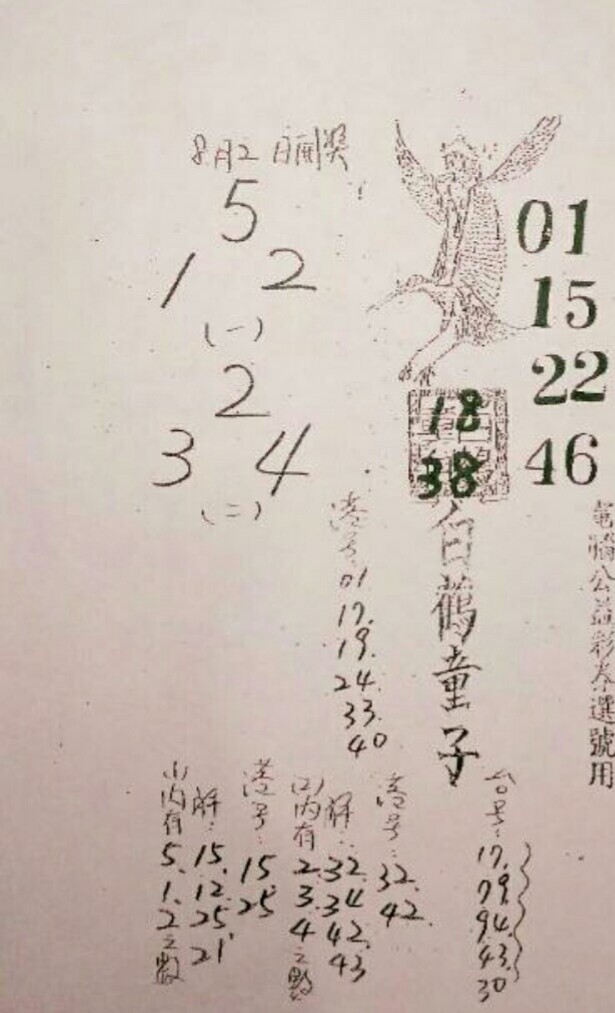 8月2日開獎
5
1 2
(一)
2
3 4
(二)
01
15
22
46
18
38
白鶴童子
電腦公益彩券選號用
港号:
01
17.
19.
24.
33.
40
(1)內有
5.
1.
2之數
解:
15.
12.
25.
21
港号:
15
25
(2)內有
2.
3.
4之數
解:
32.
34
42.
43
港号:
32.
42.
台号:
17.
79.
94.
43.
30